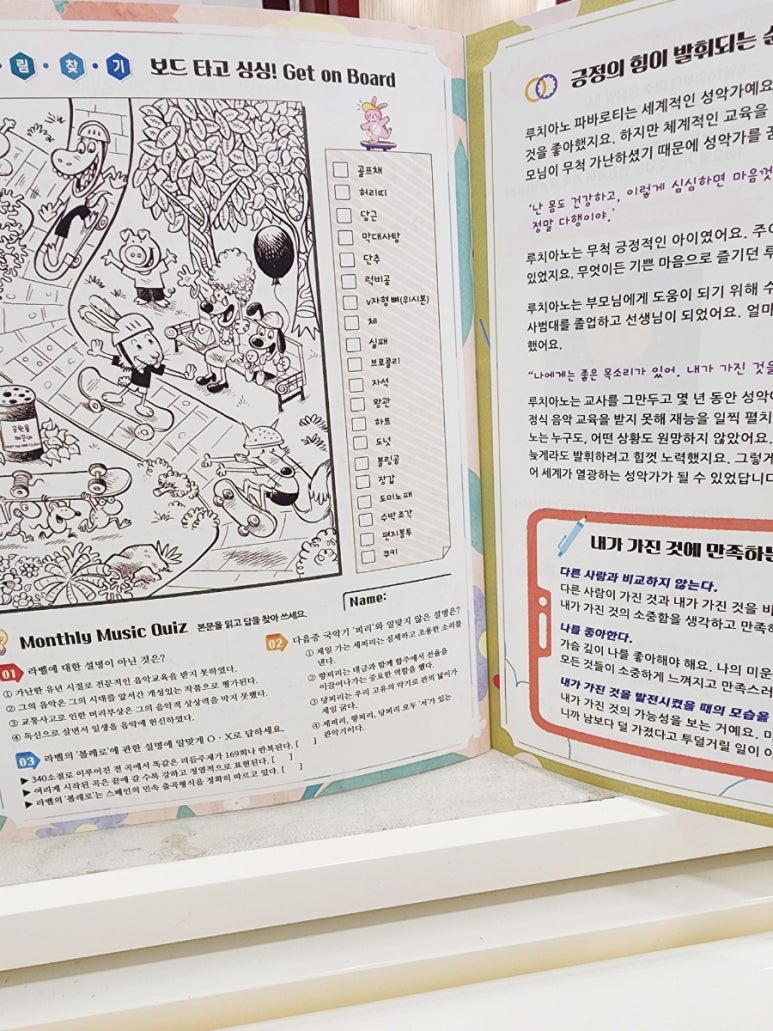 림 찾 기
보드 타고 싱싱! Get on Board
골프채
허리띠
당근
막대사탕
단추
럭비공
V자형 뼈(위시본)
체
실패
브로콜리
자석
왕관
하트
도넛
볼링공
장갑
도미노패
수박 조각
편지봉투
쿠키
Name:
Monthly Music Quiz 본문을 읽고 답을 찾아 쓰세요.
01 라벨에 대한 설명이 아닌 것은?
① 가난한 유년 시절로 전문적인 음악교육을 받지 못하였다.
② 그의 음악은 그의 시대를 앞서간 개성있는 작품으로 평가된다.
③ 교통사고로 인한 머리부상은 그의 음악적 상상력을 막지 못했다.
④ 독신으로 살면서 일생을 음악에 헌신하였다.
02 다음중 국악기 '피리'와 알맞지 않은 설명은?
① 제일 가는 세피리는 섬세하고 조용한 소리를
낸다.
② 향피리는 대금과 함께 합주에서 선율을
이끌어나가는 중요한 역할을 했다.
③ 당피리는 우리 고유의 악기로 관의 넓이가
제일 굵다.
④ 세피리, 향피리, 당피리 모두 '서'가 있는
관악기이다.
03 라벨의 '볼레로'에 관한 설명에 알맞게 O·X로 답하세요.
▶ 340소절로 이루어진 전 곡에서 똑같은 리듬주제가 169회나 반복된다. [ ]
▶ 여리게 시작된 곡은 끝에 갈 수록 강하고 정열적으로 표현된다. [ ]
▶ 라벨의 '볼레로'는 스페인의 민속 춤곡형식을 정확히 따르고 있다. [ ]
긍정의 힘이 발휘되는
루치아노 파바로티는 세계적인 성악가예요
것을 좋아했지요. 하지만 체계적인 교육을
모님이 무척 가난하셨기 때문에 성악가를
'난 몸도 건강하고, 이렇게 심심하면 마음껏
정말 다행이야.'
루치아노는 무척 긍정적인 아이였어요.
있었지요. 무엇이든 기쁜 마음으로 즐기던
루치아노는 부모님에게 도움이 되기 위해
사범대를 졸업하고 선생님이 되었어요.
했어요.
"나에게는 좋은 목소리가 있어. 내가 가진 것을
루치아노는 교사를 그만두고 몇 년 동안
정식 음악 교육을 받지 못해 재능을 일찍
노는 누구도, 어떤 상황도 원망하지 않았어요.
늦게라도 발휘하려고 힘껏 노력했지요.
어 세계가 열광하는 성악가가 될 수 있었답니다
내가 가진 것에 만족하
다른 사람과 비교하지 않는다.
다른 사람이 가진 것과 내가 가진 것을
내가 가진 것의 소중함을 생각하고
나를 좋아한다.
가슴 깊이 나를 좋아해야 해요. 나의
모든 것들이 소중하게 느껴지고
내가 가진 것을 발전시켰을 때의 모습을
내가 가진 것의 가능성을 보는 거예요.
니까 남보다 덜 가졌다고 투덜거릴 일이